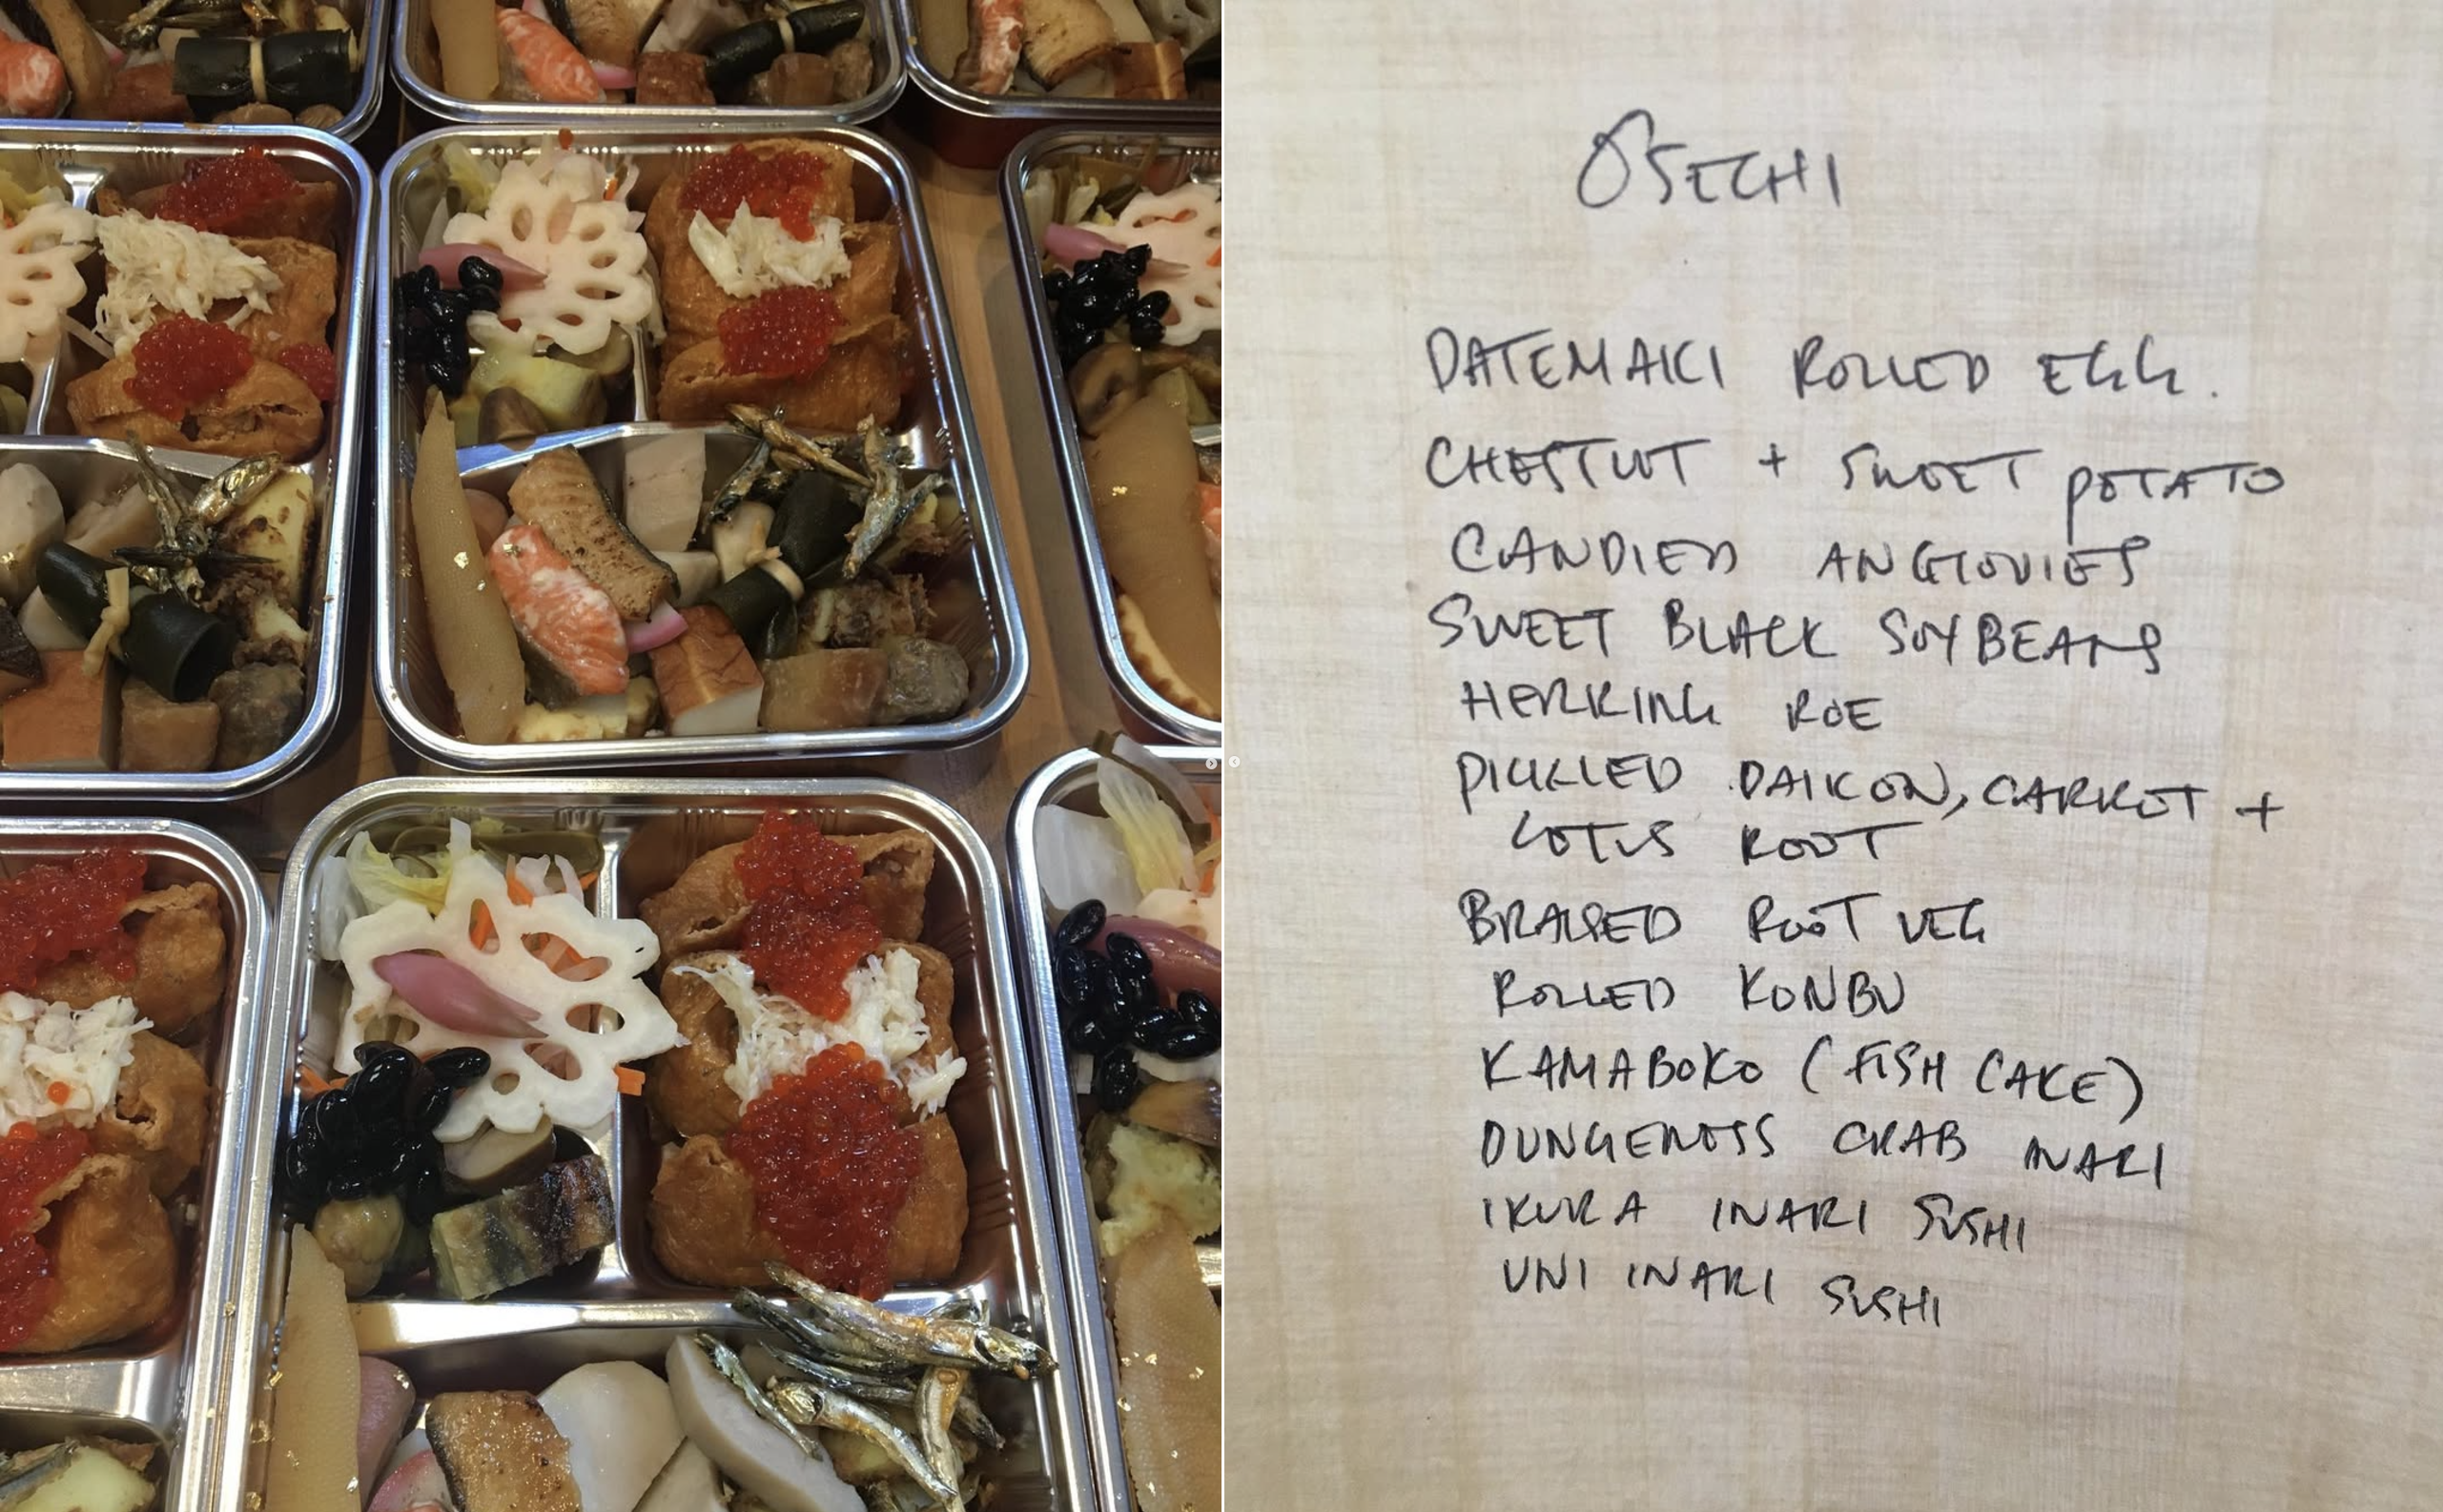 OSECHI
DATEMAKI ROLLED EGG.
CHESTNUT + SWEET POTATO
CANDIED ANCHOVIES
SWEET BLACK SOYBEANS
HERRING ROE
PICKLED DAIKON, CARROT +
LOTUS ROOT
BRAISED ROOT VEG
ROLLED KONBU
KAMABOKO (FISH CAKE)
DUNGENESS CRAB INARI
IKURA INARI SUSHI
UNI INARI SUSHI